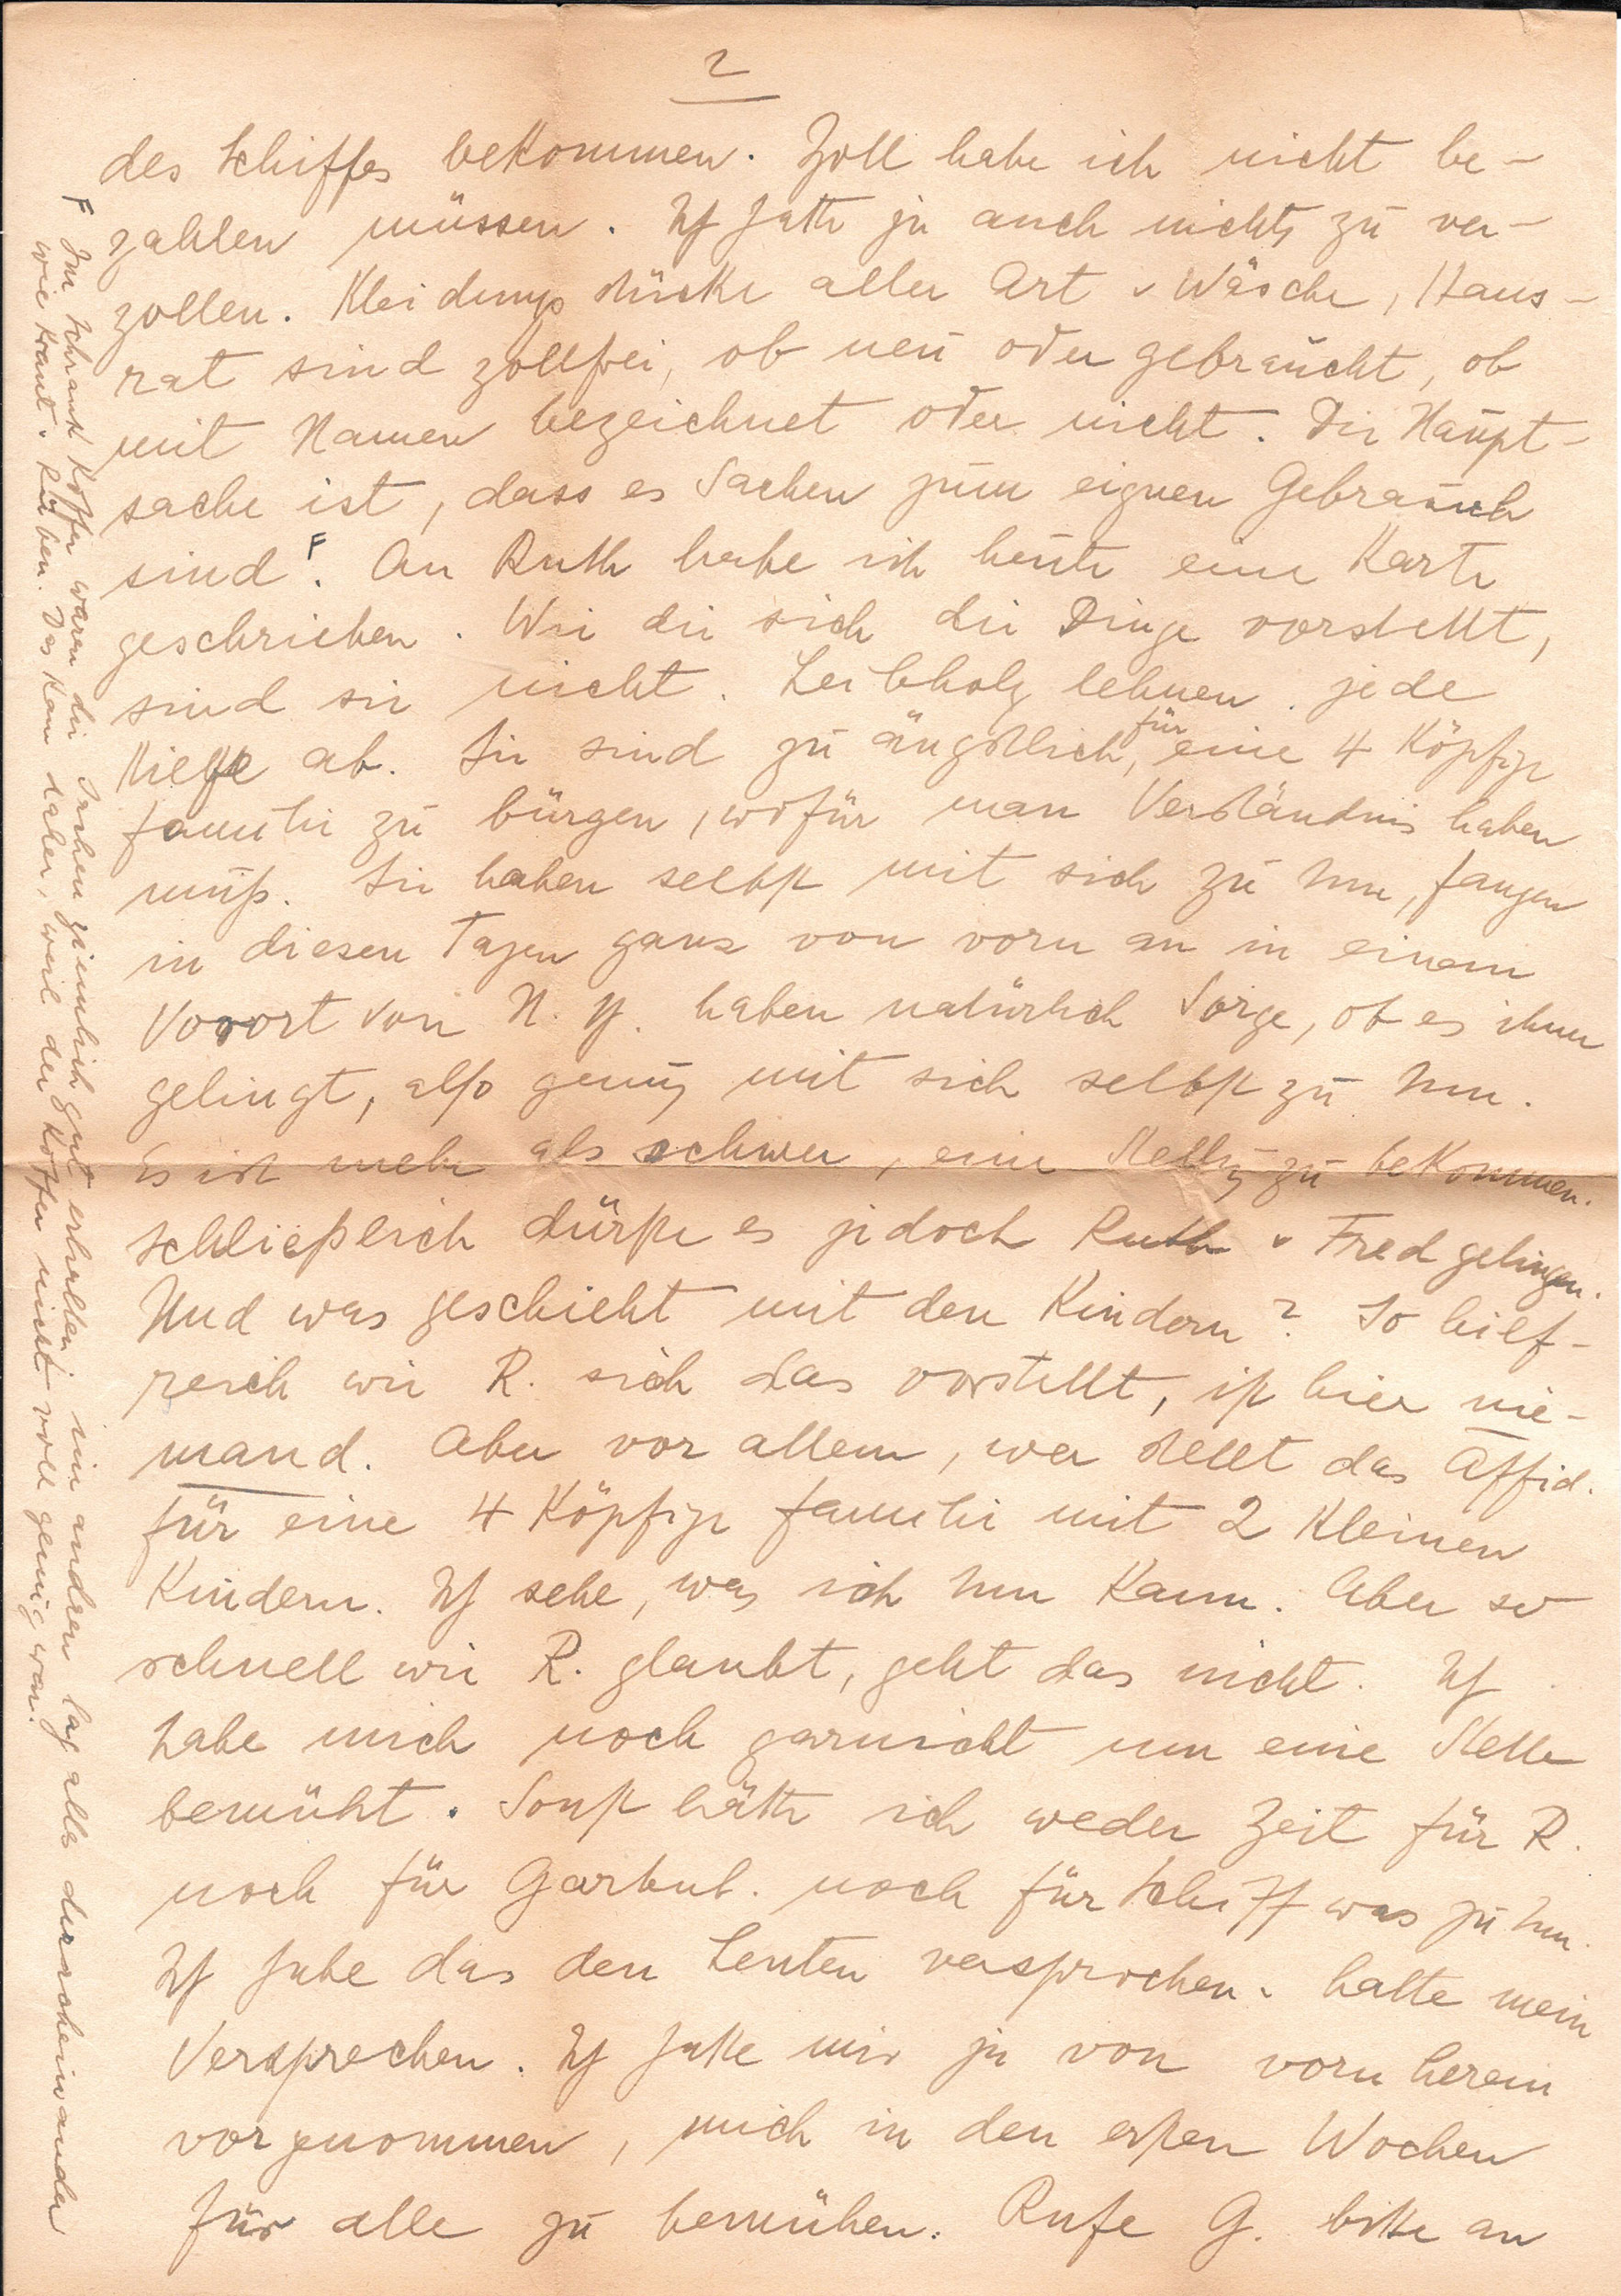 2
des Schiffes bekommen. Zoll habe ich nicht be-
zahlen müssen. Ich hatte ja auch nichts zu ver-
zollen. Kleidungsstücke aller Art u Wäsche, Haus-
rat sind zollfrei, ob neu oder gebraucht, ob
mit Namen bezeichnet oder nicht. Die Haupt-
sache ist, dass es Sachen zum eignen Gebrauch
sind F. An Ruth habe ich heute eine Karte
geschrieben. Wie die sich die Dinge vorstellt,
sind sie nicht. Leibholz lehnen jede
Hilfe ab. Sie sind zu ängstlich, für eine 4 Köpfige
Familie zu bürgen, wofür man Verständnis haben
muß. Sie haben selbst mit sich zu tun, fangen
in diesen Tagen ganz von vorn an in einem
Vorort von N. Y. haben natürlich Sorge, ob es ihnen
gelingt, also genug mit sich selbst zu tun.
Es ist mehr als schwer, eine Stellg zu bekommen.
Schließlich dürfte es jedoch Ruth u Fred gelingen.
Und was geschieht mit den Kindern? So hilf-
reich wie R. sich das vorstellt, ist hier nie-
mand. Aber vor allem, wer stellt das Affid.
für eine 4 Köpfige Familie mit 2 kleinen
Kindern. Ich sehe, was ich tun kann. Aber so
schnell wie R. glaubt, geht das nicht. Ich
habe mich noch garnicht um eine Stelle
bemüht. Sonst hätte ich weder Zeit für R.
noch für Garbul. noch für Schiff was zu tun.
Ich habe das den Leuten versprochen u halte mein
Versprechen. Ich hatte mir ja von vorn herein
vorgenommen, mich in den ersten Wochen
für alle zu bemühen. Rufe G. bitte an
F Im Schrank Koffer waren die Sachen ziemlich gut erhalten; im andren lag alles durcheinander
wie Kraut u Rüben. Das kam daher, weil der Koffer nicht voll genug war.